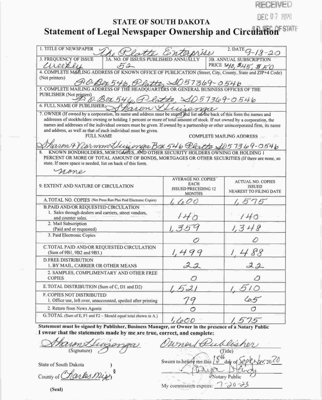 RECEIVED
DEC 07 2020
STATE OF SOUTH DAKOTA
Statement of Legal Newspaper Ownership and Circulation
1. TITLE OF NEWSPAPER The Platte Enterprise 2. DATE 9-13-20
3. FREQUENCY OF ISSUE Weekly 3A. NO. OF ISSUES PUBLISHED ANNUALLY 52 3B. ANNUAL SUBSCRIPTION PRICE
4. COMPLETE MAILING ADDRESS OF KNOWN OFFICE OF PUBLICATION (Street, City, County, State and ZIP+4 Code) (Not printers)
P.O. Box 546 Platte SD 57369-0546
5. COMPLETE MAILING ADDRESS OF THE HEADQUARTERS OR GENERAL BUSINESS OFFICES OF THE PUBLISHER (Not printers)
P.O. Box 546 Platte SD 57369-0546
6. FULL NAME OF PUBLISHER: Sharon Huizenga
7. OWNER (If owned by a corporation, its name and address must be stated and also on the back of this form the names and
addresses of stockholders owning or holding 1 percent or more of total amount of stock. If not owned by a corporation, the
names and addresses of the individual owners must be given. If owned by a partnership or other unincorporated firm, its name
and address, as well as that of each individual must be given.
FULL NAME COMPLETE MAILING ADDRESS
Sharon & Norman Huizenga Box 546 Platte SD 57369-0546
8. KNOWN BONDHOLDERS, MORTGAGEES, AND OTHER SECURITY HOLDERS OWNING OR HOLDING 1
PERCENT OR MORE OF TOTAL AMOUNT OF BONDS, MORTGAGES OR OTHER SECURITIES (If there are none, so
state. If more space is needed, list on back of this form.
none
9. EXTENT AND NATURE OF CIRCULATION AVERAGE NO. COPIES EACH ISSUED PRECEDING 12 MONTHS ACTUAL NO. COPIES ISSUED NEAREST TO FILING DATE
A. TOTAL NO. COPIES (Net Press Run Plus Paid Electronic Copies) 1,600 1,575
B. PAID AND/OR REQUESTED CIRCULATION
1. Sales through dealers and carriers, street vendors, and counter sales. 140 140
2. Mail Subscription (Paid and or requested) 1,359 1,348
3. Paid Electronic Copies 0 0
C. TOTAL PAID AND/OR REQUESTED CIRCULATION (Sum of 9B1, 9B2 and 9B3.) 1,499 1,488
D. FREE DISTRIBUTION
1. BY MAIL, CARRIER OR OTHER MEANS 22 22
2. SAMPLES, COMPLIMENTARY AND OTHER FREE COPIES 0 0
E. TOTAL DISTRIBUTION (Sum of C, D1 and D2) 1,521 1,510
F. COPIES NOT DISTRIBUTED
1. Office use, left over, unaccounted, spoiled after printing 79 65
2. Return from News Agents 0 0
G. TOTAL (Sum of E, F1 and F2 - Should equal total shown in A.) 1,600 1,575
Statement must be signed by Publisher, Business Manager, or Owner in the presence of a Notary Public
I swear that the statements made by me are true, correct, and complete:
Sharon Huizenga Owner/Publisher
(Signature) (Title)
State of South Dakota ) Sworn to before me this 18th day of September 2020
County of Charles Mix )§
Notary Public
(Seal) My commission expires: 7-20-23